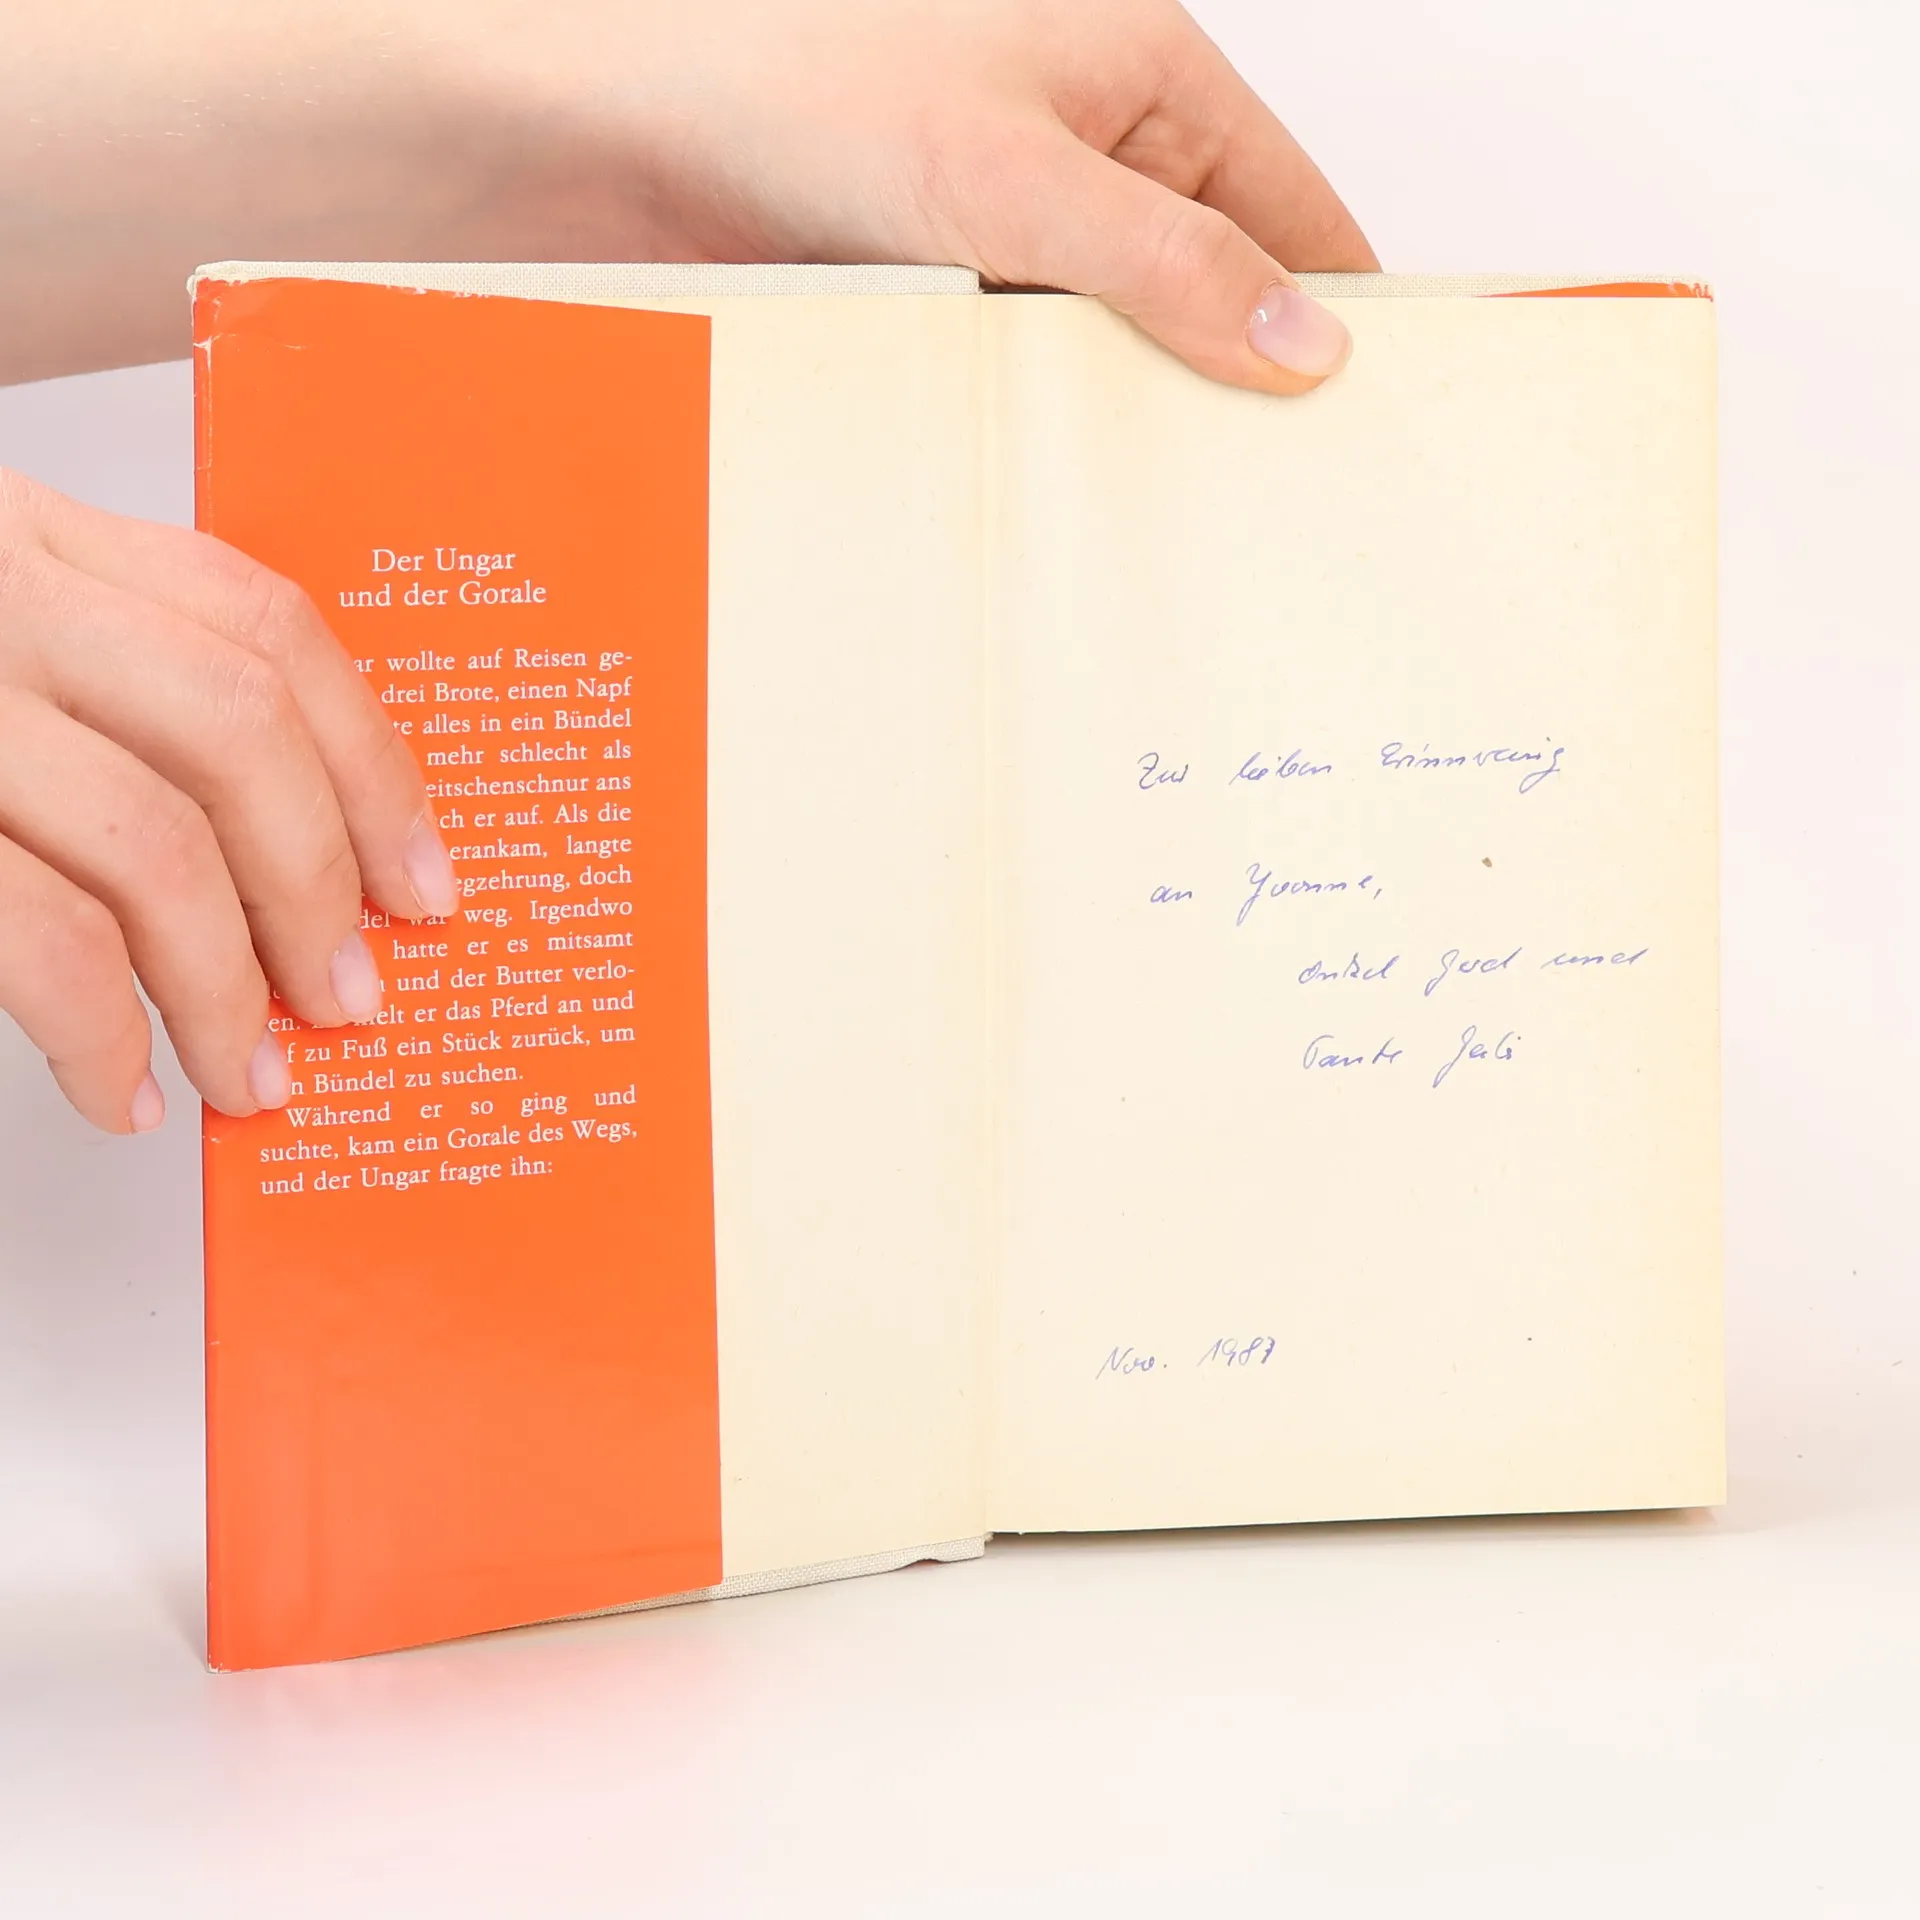 Der Ungar
und der Gorale
wollte auf Reisen ge-
drei Brote, einen Napf
alles in ein Bündel
mehr schlecht als
eitschenschnur ans
er auf. Als die
erankam, langte
egzehrung, doch
war weg. Irgendwo
hatte er es mitsamt
und der Butter verlo-
er das Pferd an und
zu Fuß ein Stück zurück, um
n Bündel zu suchen.
Während er so ging und
suchte, kam ein Gorale des Wegs,
und der Ungar fragte ihn:
Zur lieben Erinnerung
an Yvonne,
Onkel und
Tante
Nov. 1987